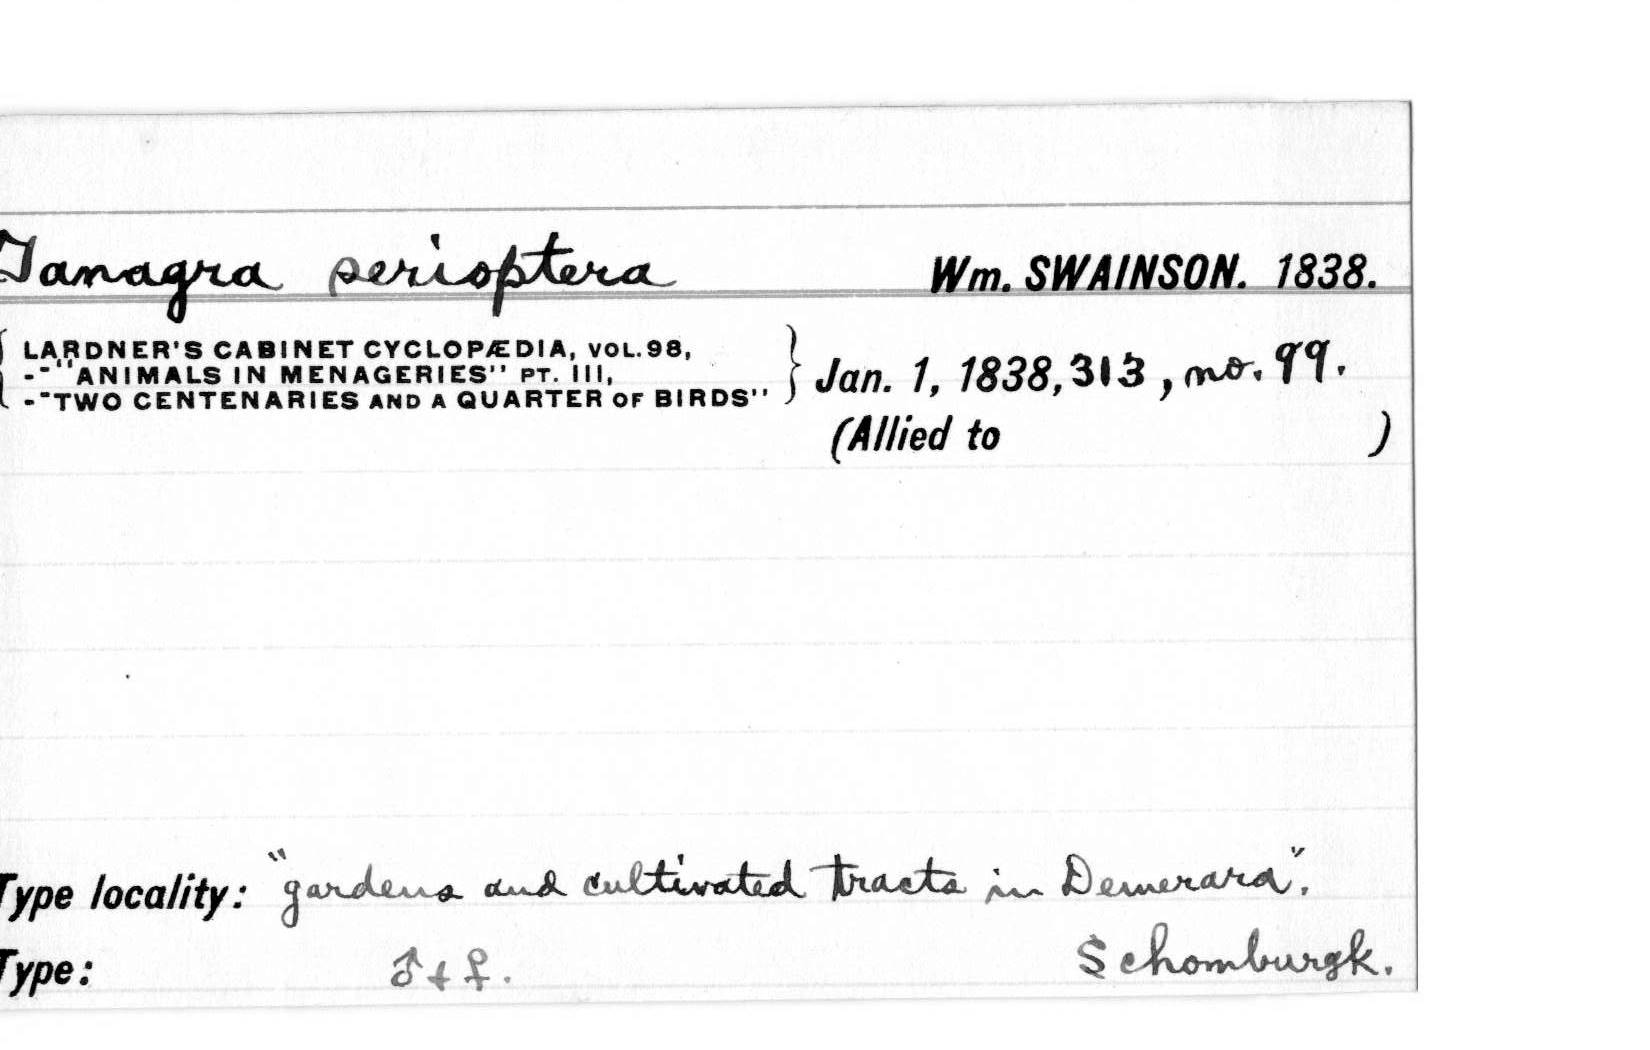 Tanagra serioptera Wm. SWAINSON. 1838.
LARDNER'S CABINET CYCLOPÆDIA, VOL. 98,
-"ANIMALS IN MENAGERIES" PT. III,
-"TWO CENTENARIES AND A QUARTER OF BIRDS"
Jan. 1, 1838, 313, no. 99.
(Allied to )
Type locality: "gardens and cultivated tracts in Demerara".
Type: ♂ + ♀. Schomburgk.